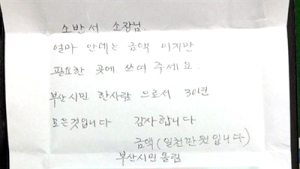 소방서 소장님.
얼마 안데는 금액 이지만
필요한 곳에 쓰며 주세요.
부산시민 한사람 으로서 30년
모든것입니다 감사합니다
금액(일천만원입니다)
부산시민 올림